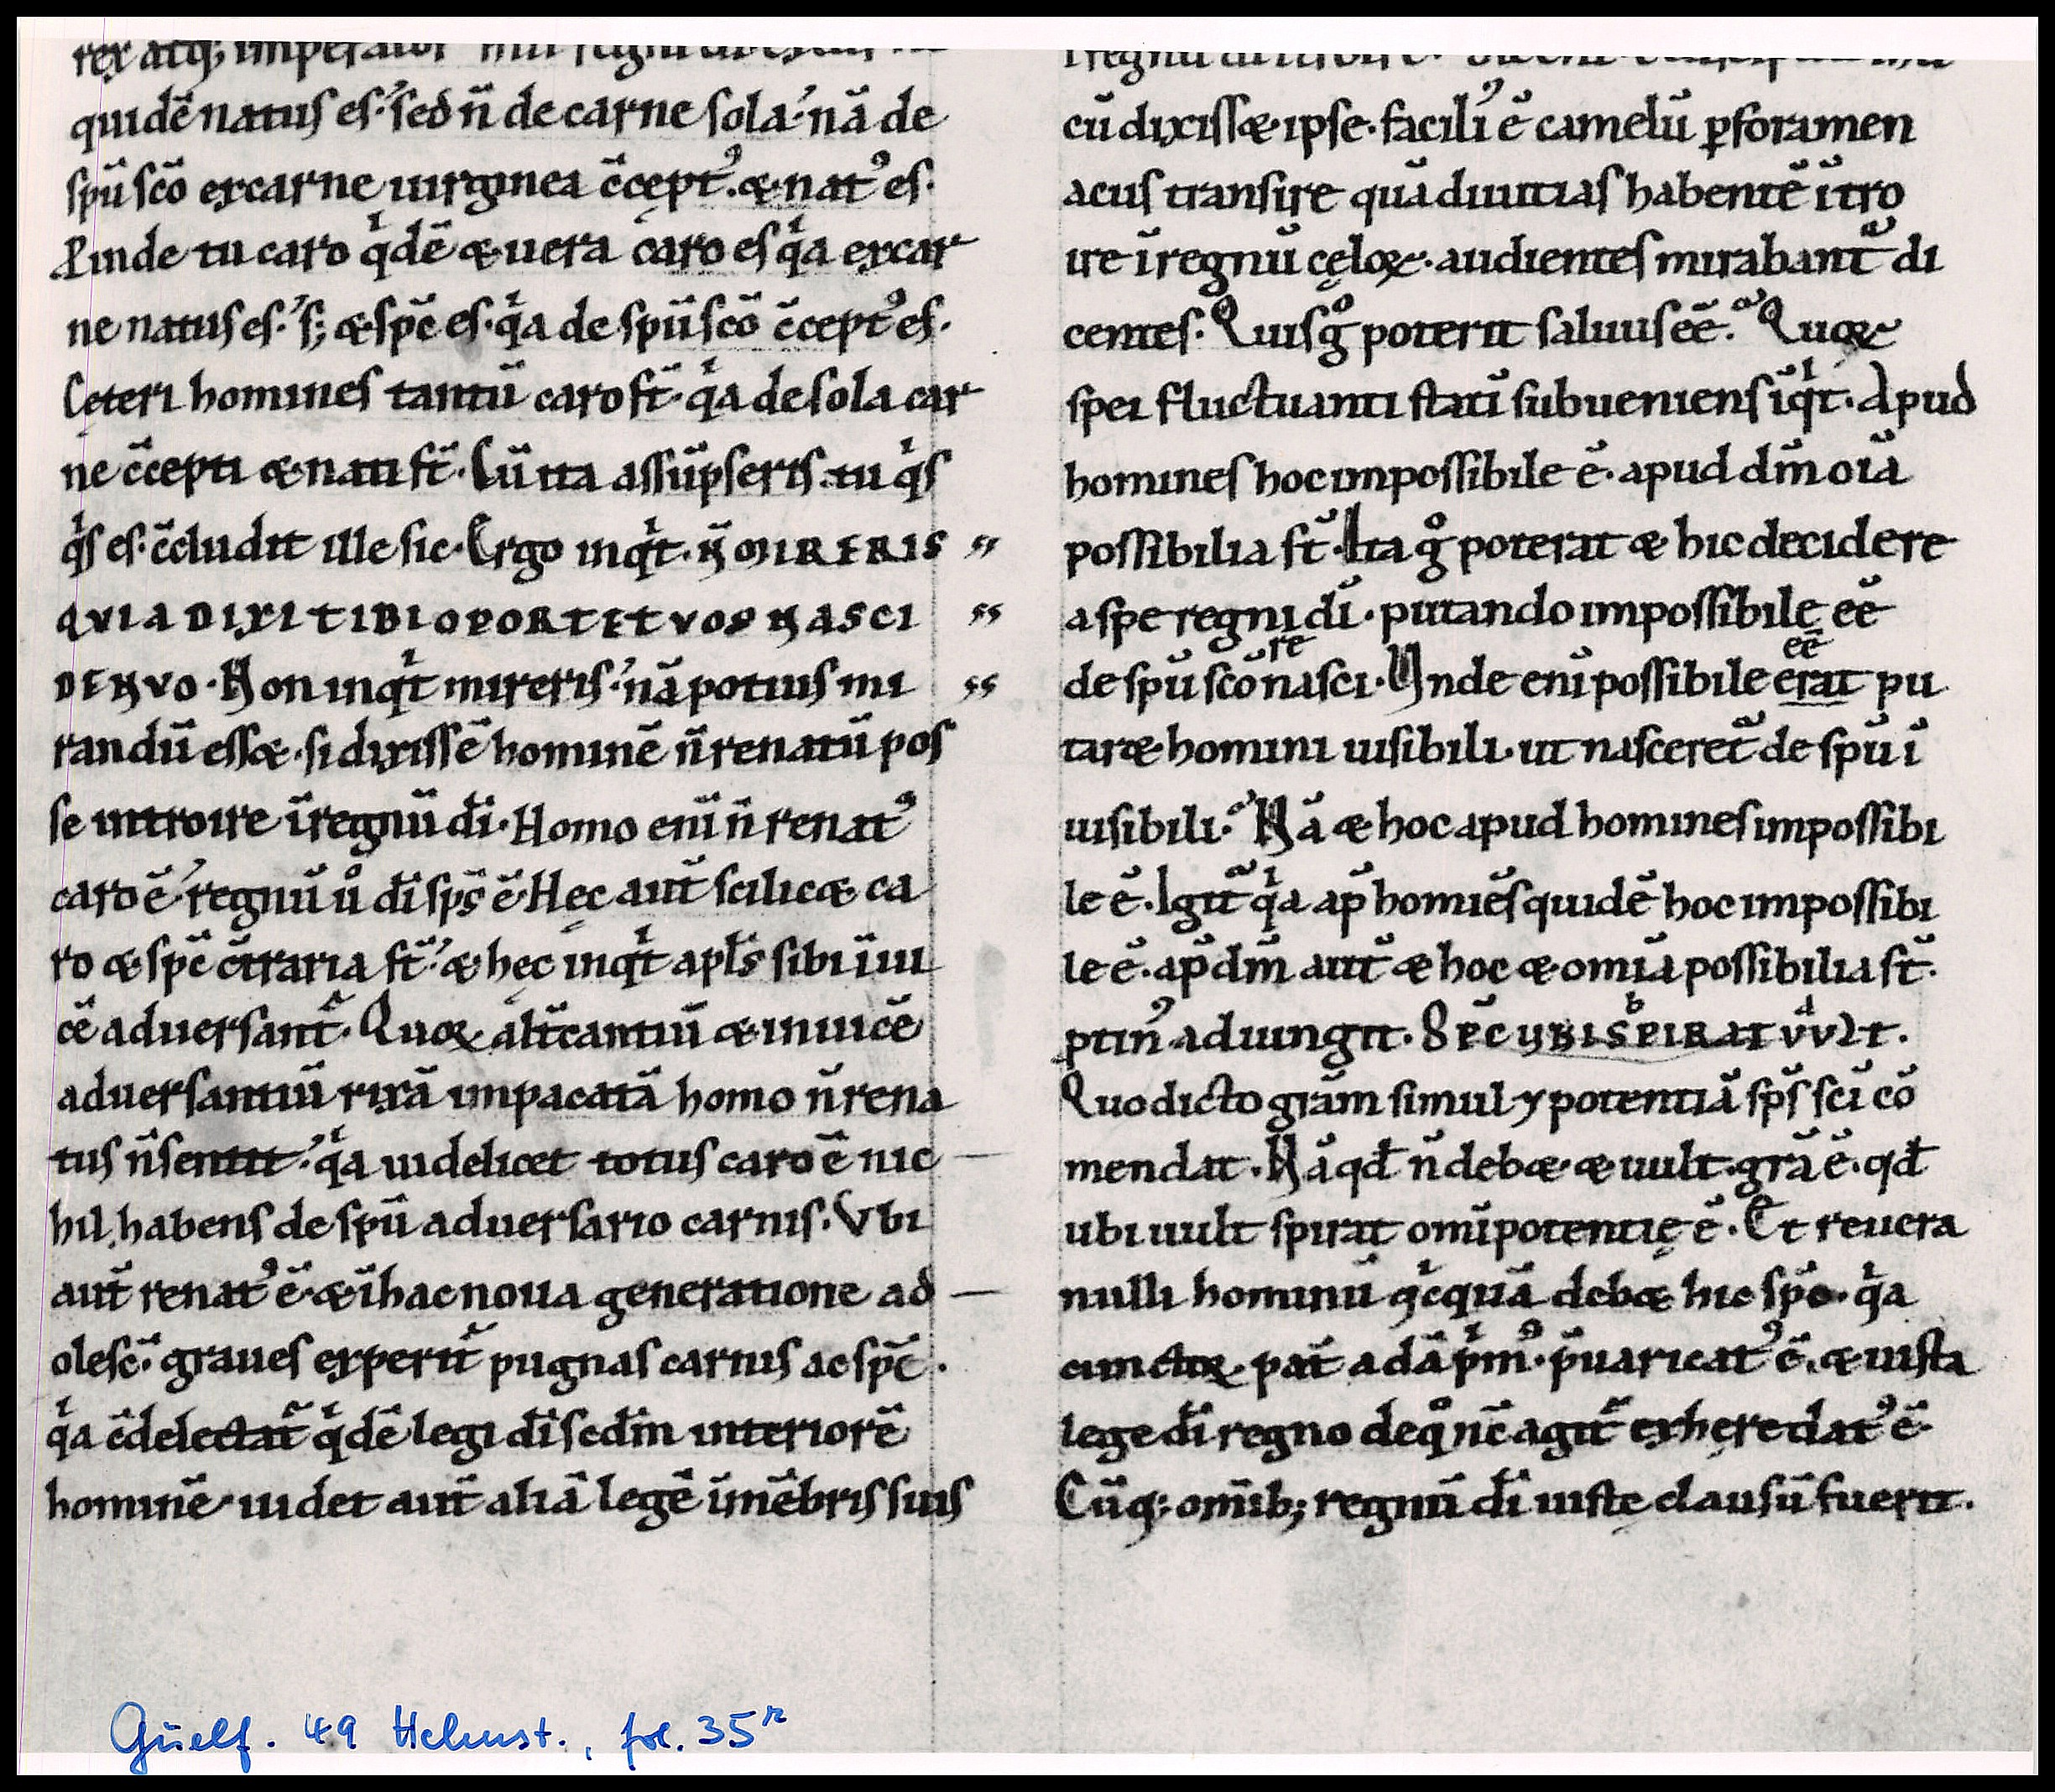 rex atq;
quidē natus es. sed n̄ de carne sola. nā de
spū scō ex carne uirginea c̄ceptꝰ. & natꝰ es.
Proinde tu caro qͥdē & uera caro es qͥa ex car
ne natus es. s; & spc̄ es. qͥa de spū scō c̄ceptꝰ es.
Cęteri homines tantū caro st̄. qͥa de sola car
ne c̄cepti & nati st̄. Cū ita assūpseris. tu qͥs
qͥs es. c̄cludit ille sic. Ergo inqͥt. N̄ MIRERIS
QVIA DIXI TIBI OPORTET VOS NASCI
DENVO. Non inqͥt mireris. nā potius mi
randū ess&. si dixissē hominē n̄ renatū pos
se introire ī regnū dī. Homo enī n̄ renatꝰ
caro ē. regnū ůͦ dī sps̄ ē. Hęc aut̄ scilic& ca
ro & spc̄ c̄traria st̄. & hęc inqͥt apl̄s sibi īui
cē aduersant̄. Quoꝝ alt̄cantiū & inuicē
aduersantiū rixā impacatā homo n̄ rena
tus n̄ sentit. qͥa uidelicet totus caro ē nic
hil habens de spū aduersario carnis. Vbi
aut̄ renatꝰ ē. & ī hac noua generatione ad
olesc̄. graues experit̄ pugnas carnis ac spc̄.
qͥa c̄delectat̄ qͥdē legi dī scdm̄ interiorē
hominē. uidet aut̄ aliā legē ī mēbris suis
cū dixiss& ipse. faciliꝰ ē camelū ꝑ foramen
acus transire quā diuitias habentē ītro
ire ī regnū cęloꝝ. audientes mirabant̄ di
centes. Quis gͦ poterit saluus eē. Quoꝝ
spei fluctuanti statī subueniens īqͥt. Apud
homines hoc impossibile ē. apud dm̄ oīa
possibilia st̄. Ita gͦ poterat & hic decidere
a spe regni dī. putando impossibile eē
de spū scō renasci. Vnde enī possibile erat eē pu
tar& homini uisibili. ut nasceret̄ de spū ī
uisibili. Nā & hoc apud homines impossibi
le ē. Igit̄ qͥa ap̄ homīes quidē hoc impossibi
le ē. ap̄ dm̄ aut̄ & hoc & omīa possibilia st̄.
ꝓtinꝰ adiungit. SPC̄ VBI SPIRAT VVLT.
Quo dicto grām simul ⁊ potentiā sps̄ scī cō
mendat. Nā qd̄ n̄ deb& & uult. grā ē. qd̄
ubi uult spirat omīpotentię ē. Et reuera
nulli hominū qͥcquā deb& hic spc̄. qͥa
cunctoꝝ pat̄ adā pͥmꝰ. p̄uaricatꝰ ē. & iusta
lege dī regno de qͦ nc̄ agit̄ exheredatꝰ ē.
Cūq; omīb; regnū dī iuste clausū fuerit.
Guelf. 49 Helmst., fol. 35ʳ